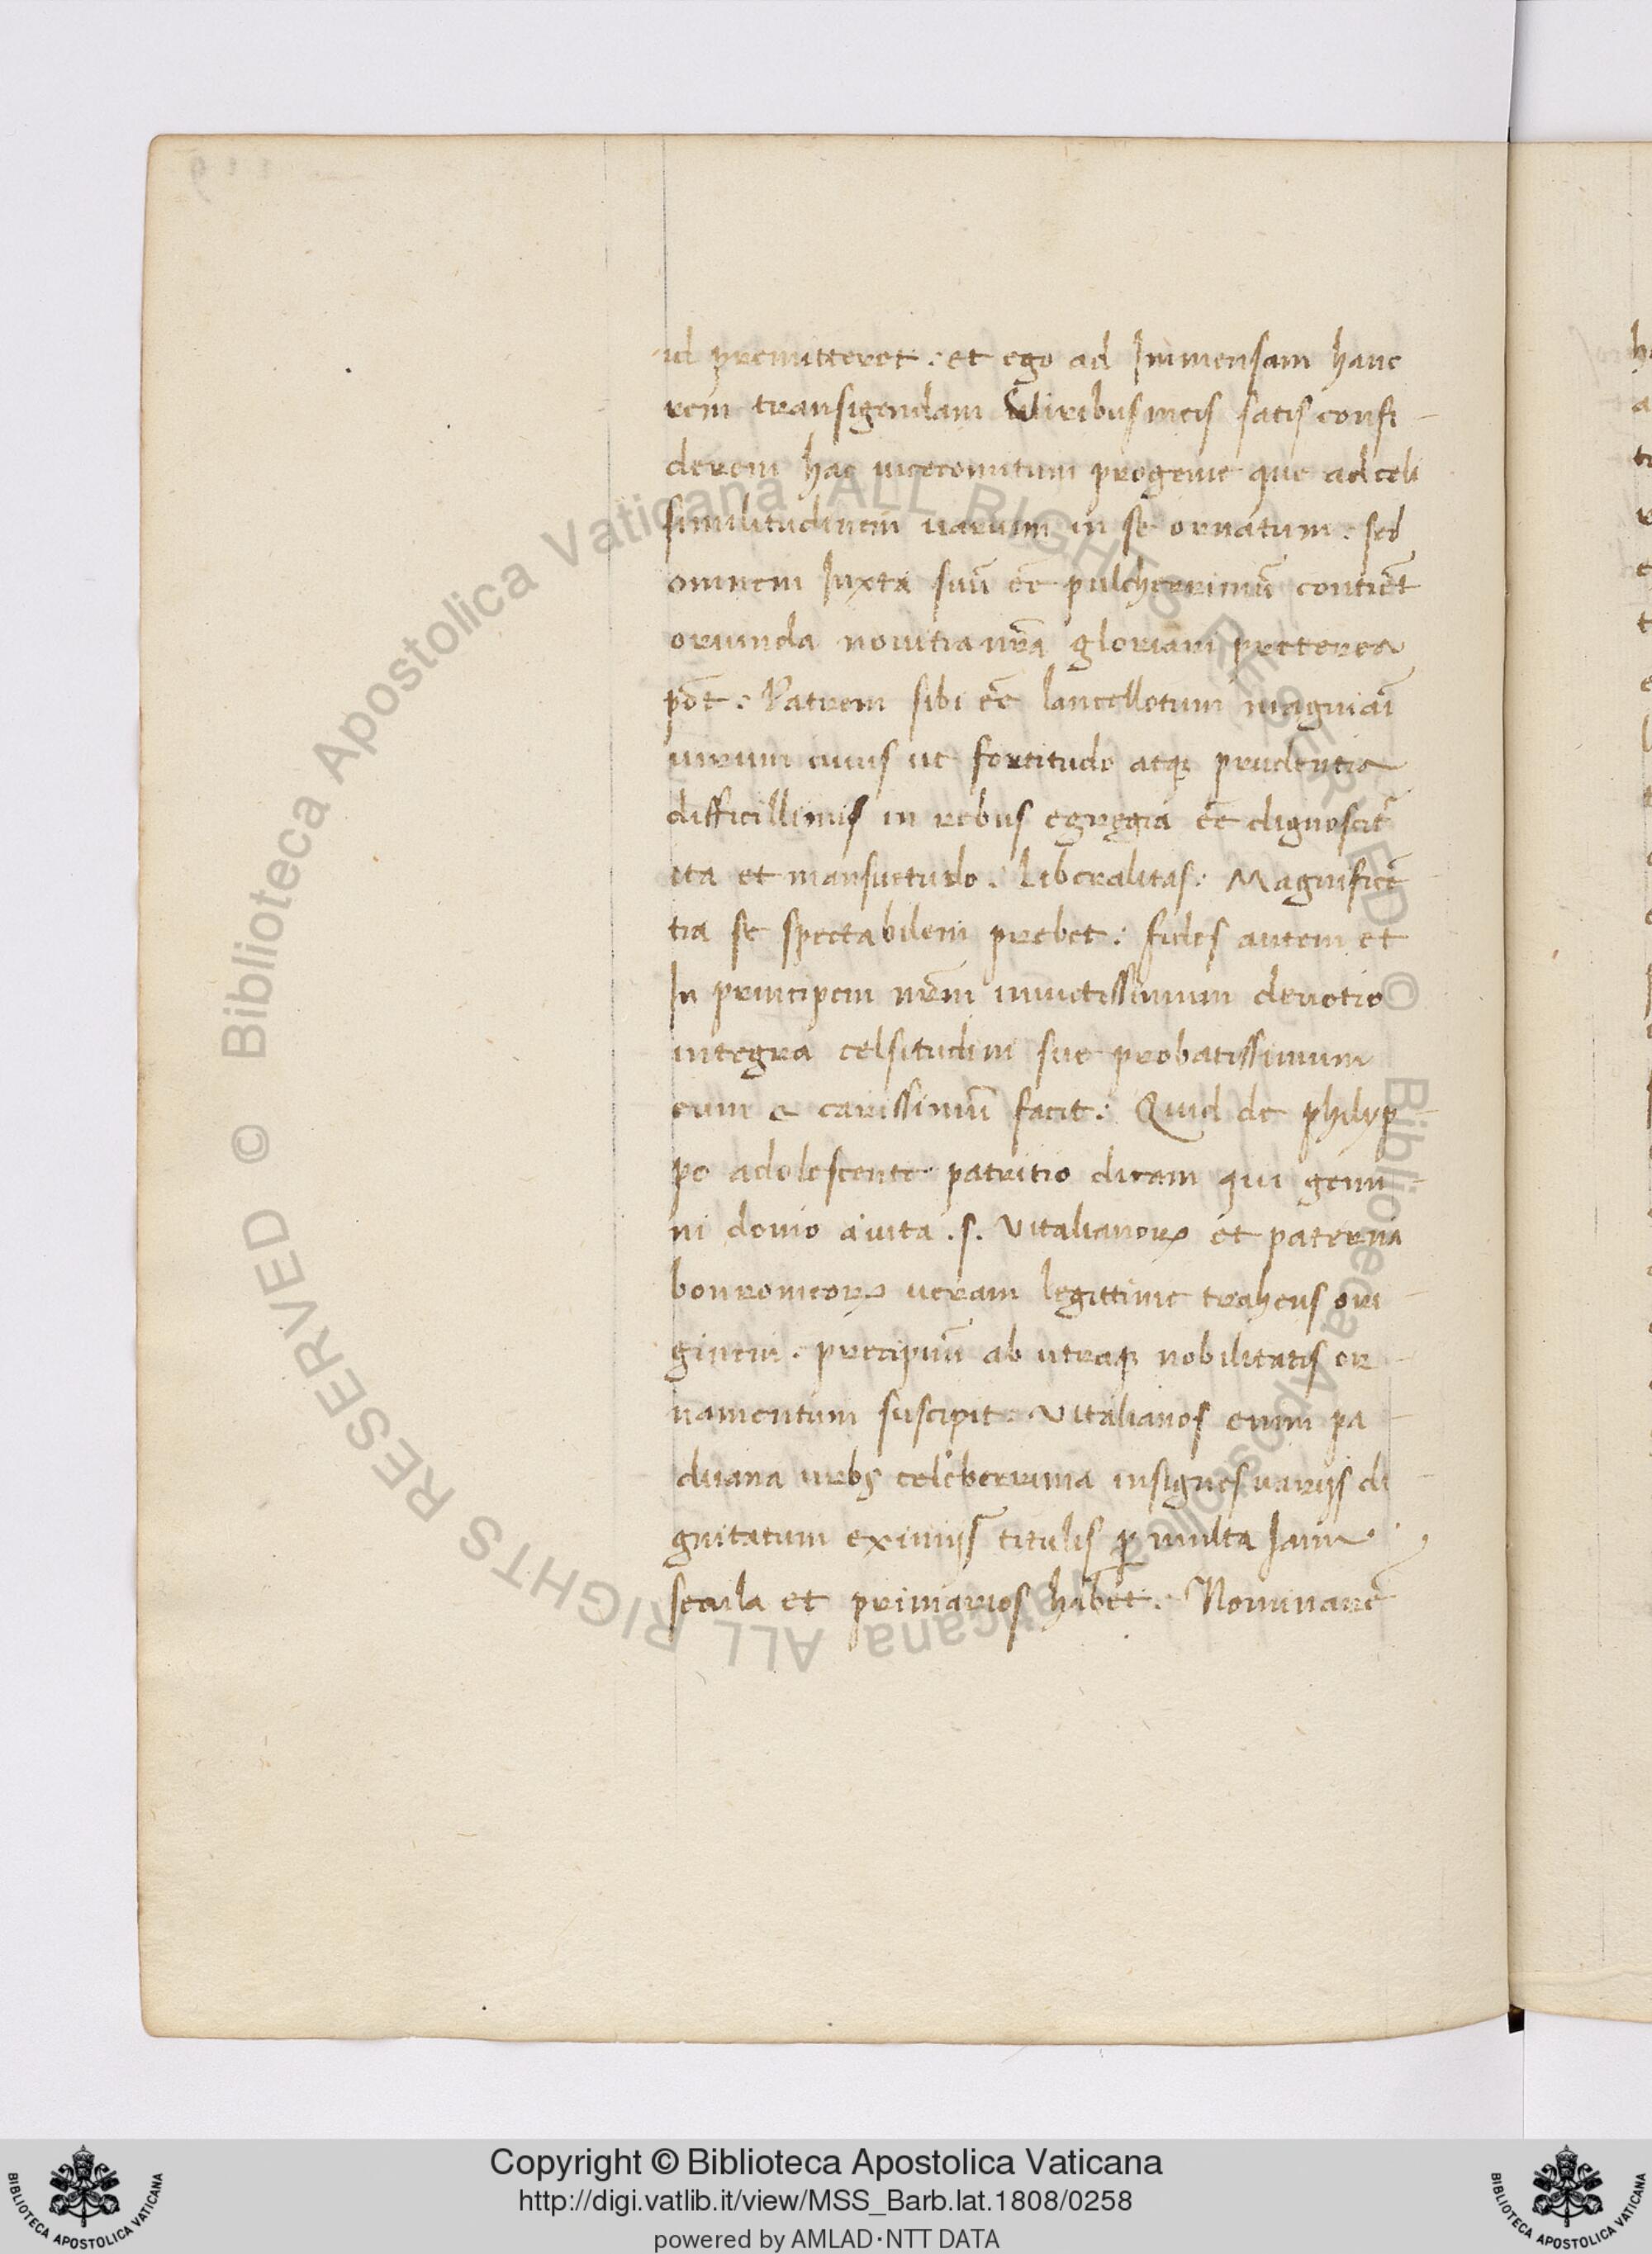 id premitteret. et ego ad Immensam hanc
rem transigendam Viribus meis satis confi-
derem hac vicecomitum progenie que ad celi
similitudinem uarium in se ornatum. sed
omnem Iuxta suū eē pulcherrimū continēt
oriunda nouitia nr̄a gloriari preterea
pōt. Patrem sibi eē lancellotum magniāi
uirum cuius ut fortitudo atqȝ prudentia
difficillimis in rebus egregia eē dignoscit᷑
ita et mansuetudo. Liberalitas: Magnificē
tia se spectabilem prebet: fides autem et
In principem nr̄m inuictissimum deuotio
integra celsitudini sue probatissimum
eum & carissimū facit: Quid de philyp-
po adolescente patritio dicam qui gemi-
ni domo auita .s. Vitalianoꝝ et paterna
bonromeoꝝ ueram legittime trahens ori-
ginem. precipuū ab utraqȝ nobilitatis or-
namentum suscipit. Vitalianos enim pa-
duana urbs celeberrima insignes uarijs di-
gnitatum eximijs titulis ꝑ multa Iam
secula et primarios habet. Nominare
Copyright © Biblioteca Apostolica Vaticana
http://digi.vatlib.it/view/MSS_Barb.lat.1808/0258
powered by AMLAD·NTT DATA
© Biblioteca Apostolica Vaticana ALL RIGHTS RESERVED
© Biblioteca Apostolica Vaticana ALL RIGHTS RESERVED
BIBLIOTECA APOSTOLICA VATICANA
BIBLIOTECA APOSTOLICA VATICANA